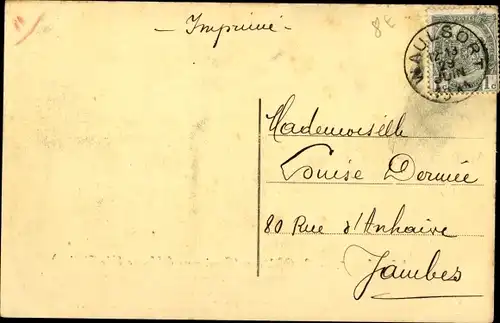 - Imprimé -
8€
WAULSORT
19
JUIN
1c
Mademoiselle
Louise Dermée
80 Rue d'Anhaive
Jambes